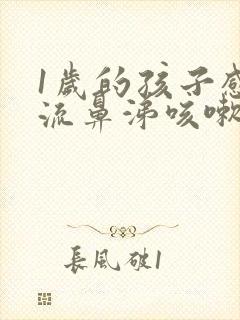 1歲的孩子感
流鼻涕咳嗽
長風破1